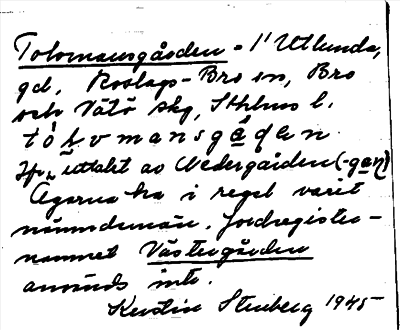 Tolvmansgården - i Utlunda,
gd, Roslags-Bro sn, Bro
och Vätö skg, Sthlms l.
tólvmansgå̱ḍen
Jfr uttalet av Nedergården (-gaṇ)
Ägarna ha i regel varit
nämndemän. Jordregister-
namnet Västergården
används inte.
Kerstin Stenberg 1945